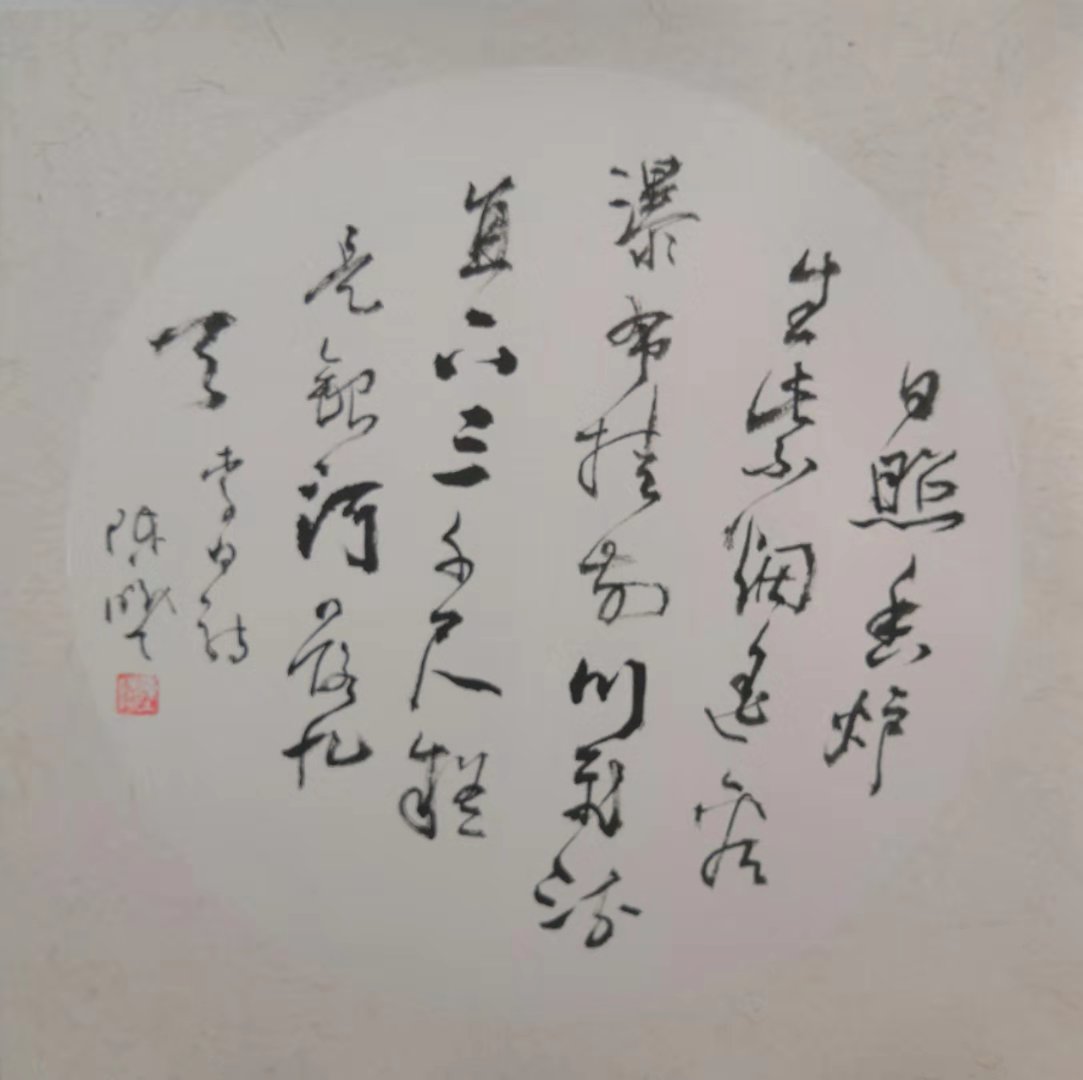 日照香炉
生紫烟遥看
瀑布挂前川飛流
直下三千尺疑
是銀河落九
天
李白诗
陈